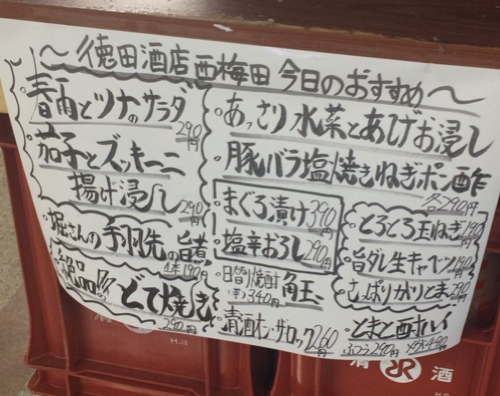 〜徳田酒店 西梅田 今日のおすすめ〜
春雨とツナのサラダ
290円
茄子とズッキーニ
揚げ浸し
290円
堀さんの手羽先の旨煮
1本190円
どて焼き
290円
あっさり水菜とあげお浸し
豚バラ塩焼きねぎポン酢
各290円
まぐろ漬け 390円
塩辛おろし 290円
日替り焼酎
340円
角玉
青酒オン・ザ・ロック 260円
とろとろ玉ねぎ 190円
旨ダレ生キャベツ 190円
さっぱりかりとま 290円
とまと酎ハイ
ふつう290円 メガ490円
清 酒